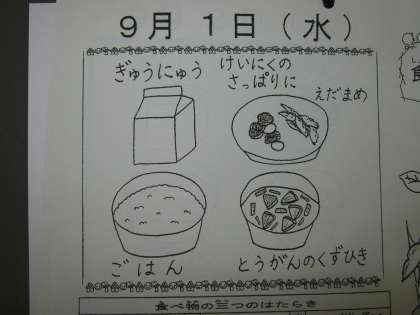 9月 1日(水)
ぎゅうにゅう
けいにくの
さっぱりに
えだまめ
ごはん
とうがんのくずひき
食べ物の三つのはたらき
食